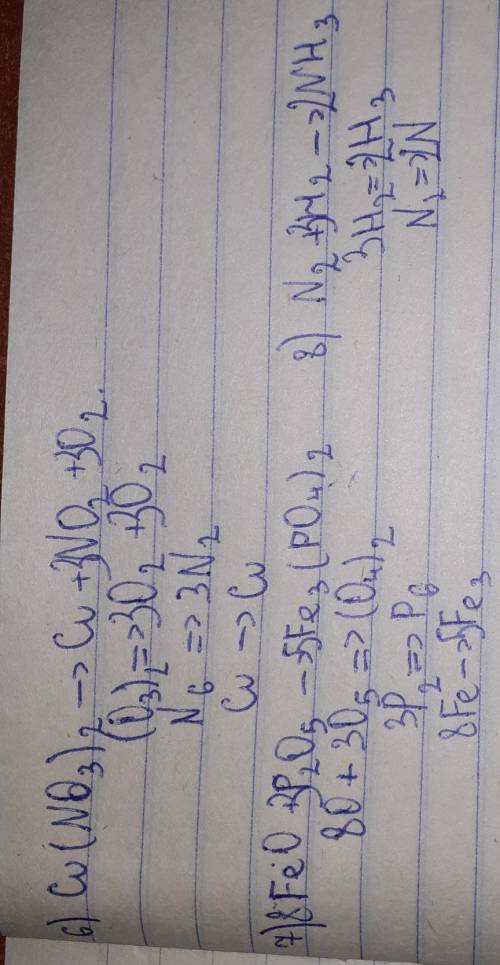 6) Cu(NO3)2 -> Cu + 3NO2 + 3O2.
(O3)2 => 3O2 + 3O2
N6 => 3N2
Cu -> Cu
7) 8FeO + 3P2O5 -> 5Fe3(PO4)2
8O + 3O5 => (O4)2
3P2 => P6
8Fe -> 5Fe3
8) N2 + 3H2 -> 2NH3
3H2 => 2H3
N2 => 2N